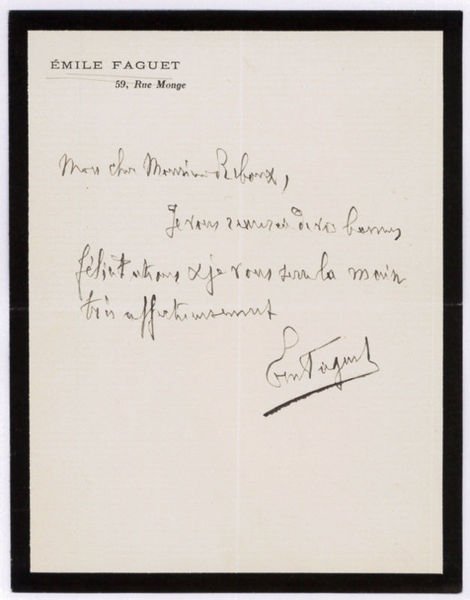 ÉMILE FAGUET
59, Rue Monge
Mon cher Monsieur Reboux,
Je vous remercie de vos bonnes
félicitations & je vous serre la main
très affectueusement
Em Faguet